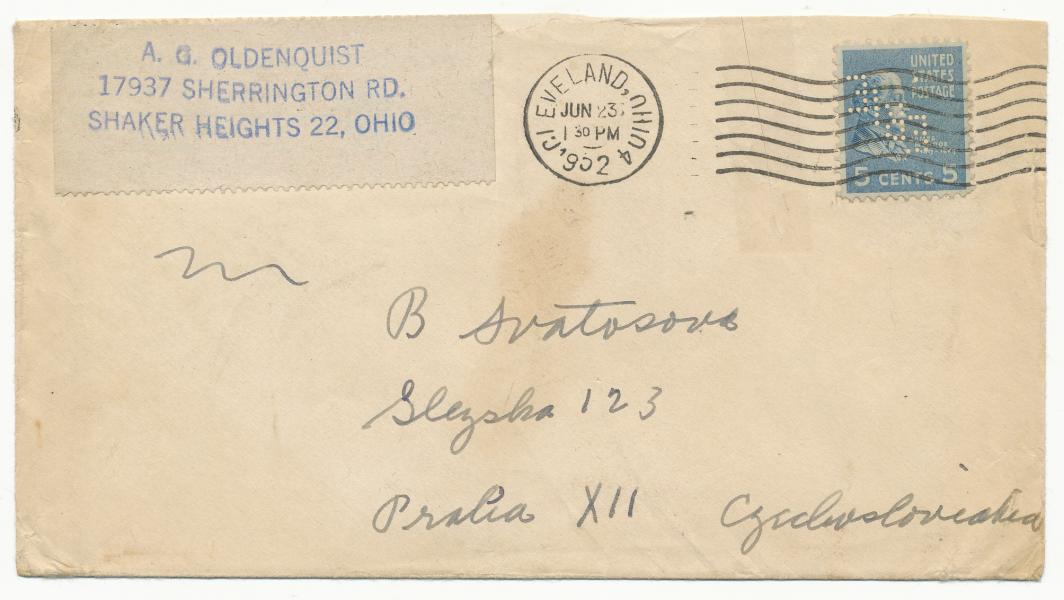 A. G. OLDENQUIST
17937 SHERRINGTON RD.
SHAKER HEIGHTS 22, OHIO
CLEVELAND, OHIO 4
JUN 23
1 30 PM
1952
UNITED
STATES
POSTAGE
5 CENTS 5
B Svatosova
Slezska 123
Praha XII Czechoslovakia